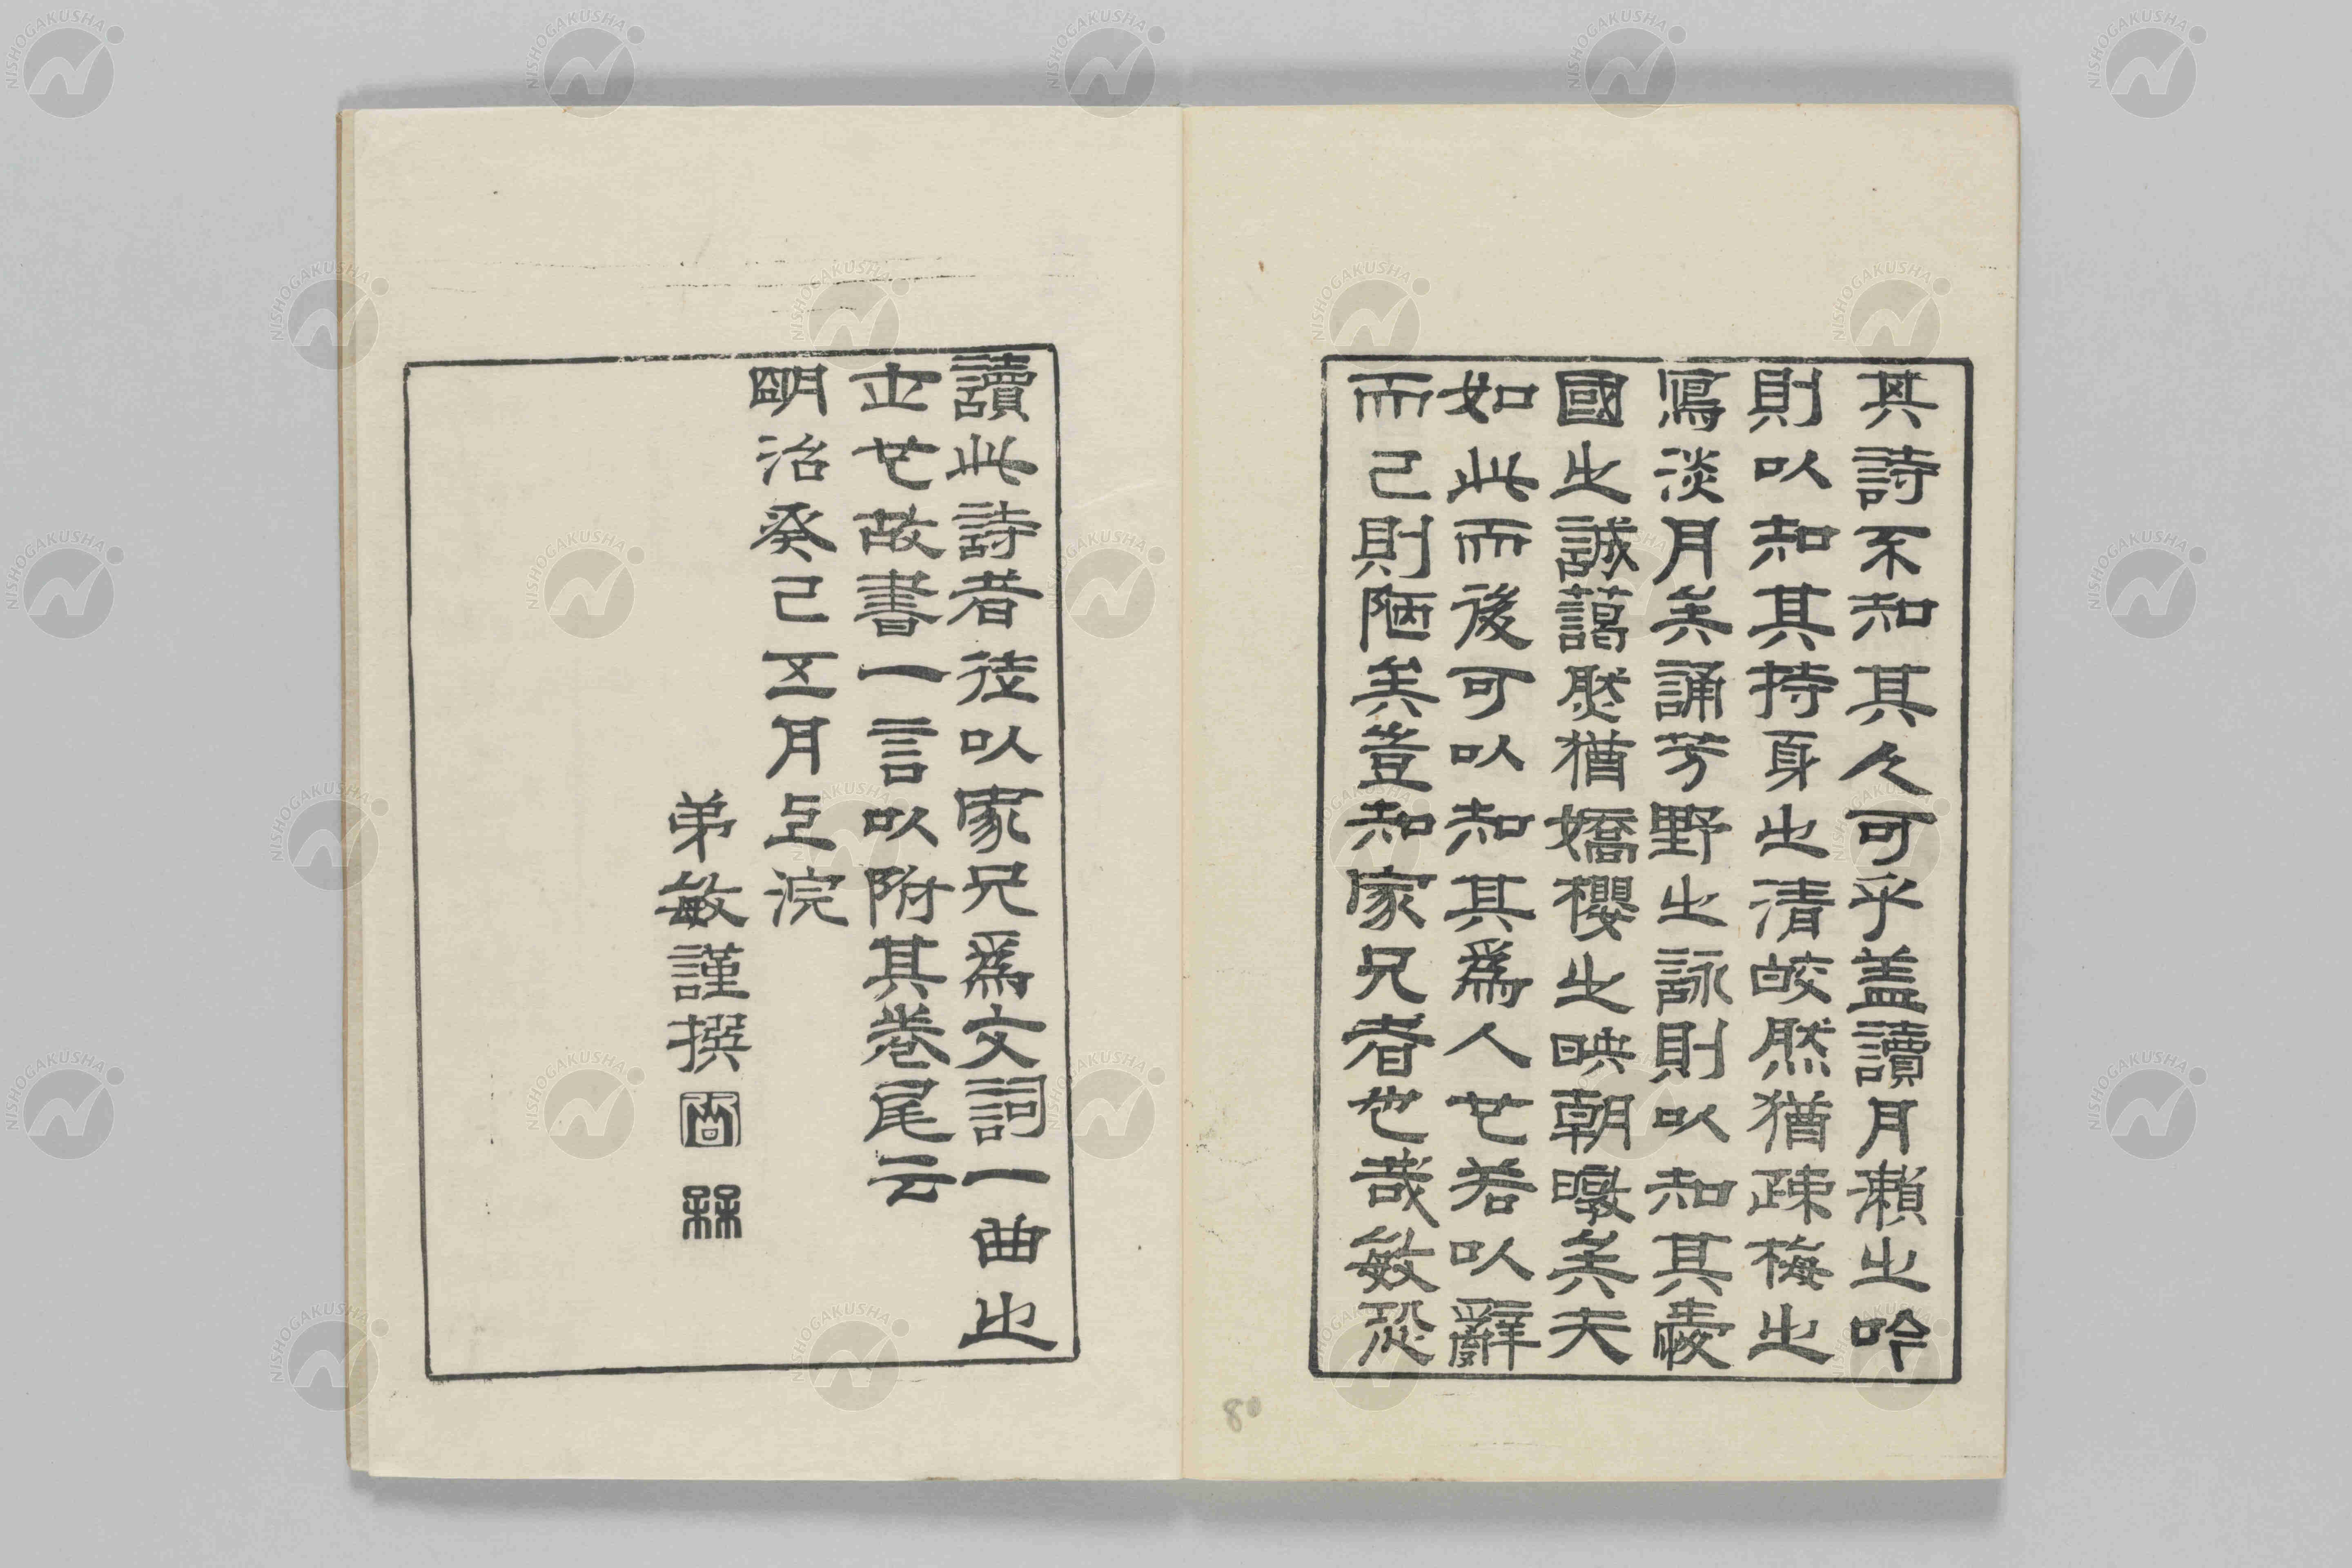 其詩不知其人可乎盖讀月瀨之吟
則以知其持身之清皎然猶疎梅之
寫淡月矣誦芳野之詠則以知其憂
國之誠藹然猶嬌櫻之映朝暾矣夫
如此而後可以知其爲人也若以辭
而已則陋矣豈知家兄者也哉敏恐
讀此詩者徒以家兄爲文詞一曲之
士也故書一言以附其卷尾云
明治癸巳五月上浣
弟敏謹撰
80
NISHOGAKUSHA